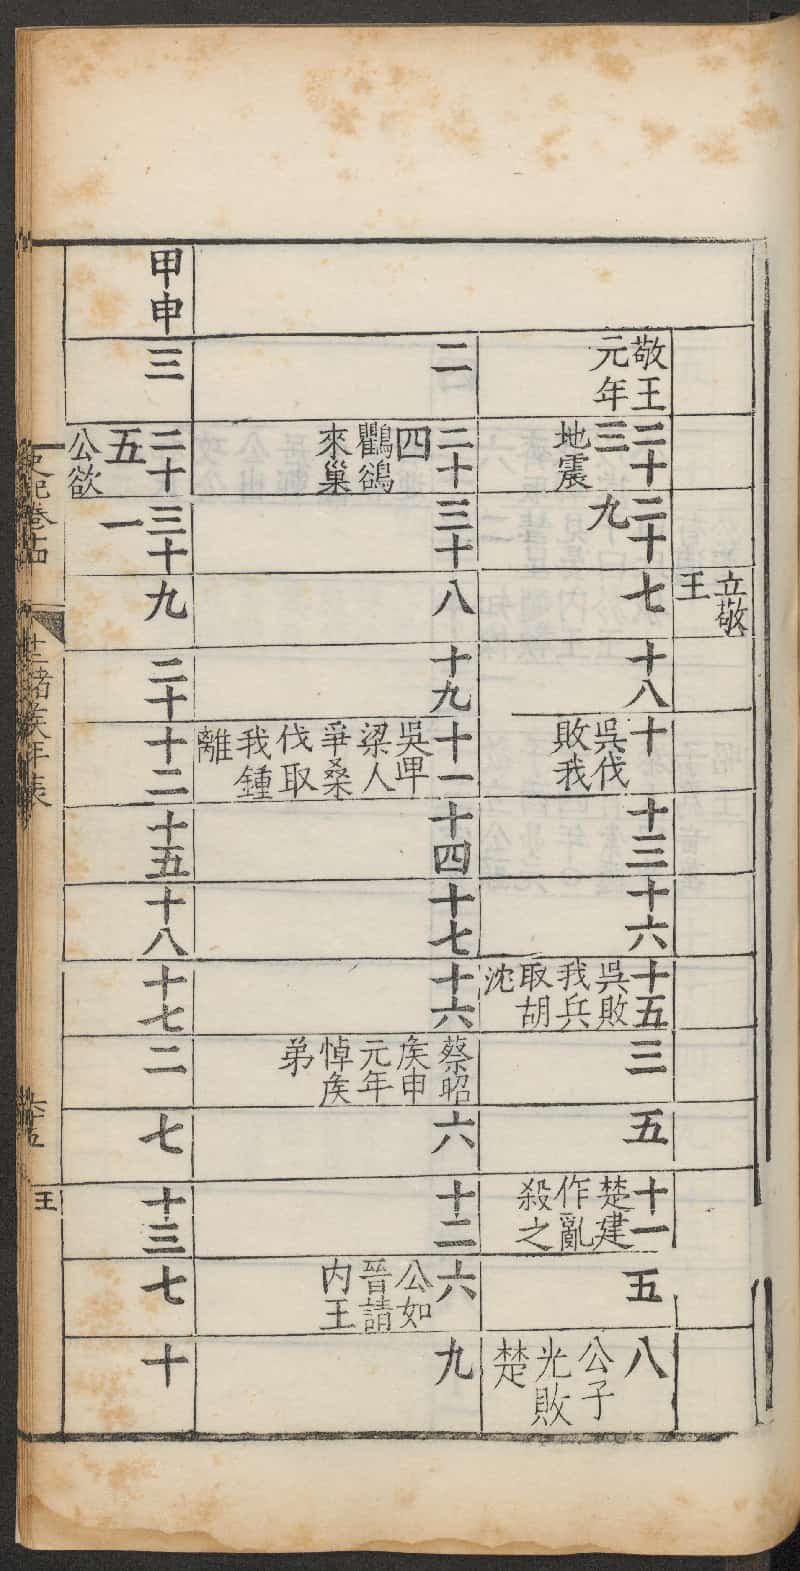 立敬
王
敬王
元年
二十
三
地震
二十
九
七
十八
十
吳伐
敗我
十三
十六
十五
吳敗
我兵
取胡
沈
三
五
十一
楚建
作亂
殺之
五
八
公子
光敗
楚
二
二十
四
鸜鵒
來巢
三十
八
十九
十一
吳卑
梁人
爭桑
伐取
我鍾
離
十四
十七
十六
蔡昭
矦申
元年
悼矦
弟
六
十二
六
公如
晉請
内王
九
甲申
三
二十
五
公欲
三十
一
九
二十
十二
十五
十八
十七
二
七
十三
七
十
史記卷十四
十二諸矦年表
王